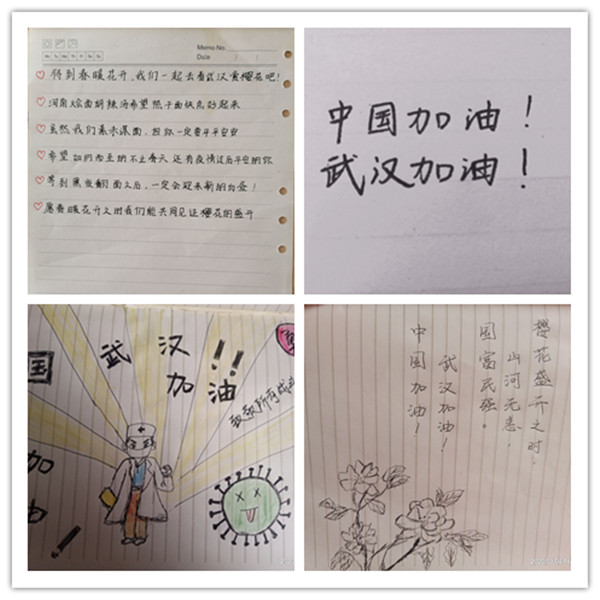 Memo No.
Date / /
待到春暖花开,我们一起去看武汉赏樱花吧!
河南烩面胡辣汤希望热干面快点好起来
虽然我们素未谋面,但你一定要平平安安
希望如约而至的不止春天 还有疫情过后平安的你
等到黑夜翻面之后,一定会迎来新的白昼!
愿春暖花开之时我们能共同见证樱花的盛开
中国加油!
武汉加油!
国
武汉!!
加油
致敬所有战
加油
樱花盛开之时,
山河无恙,
国富民强。
武汉加油!
中国加油!